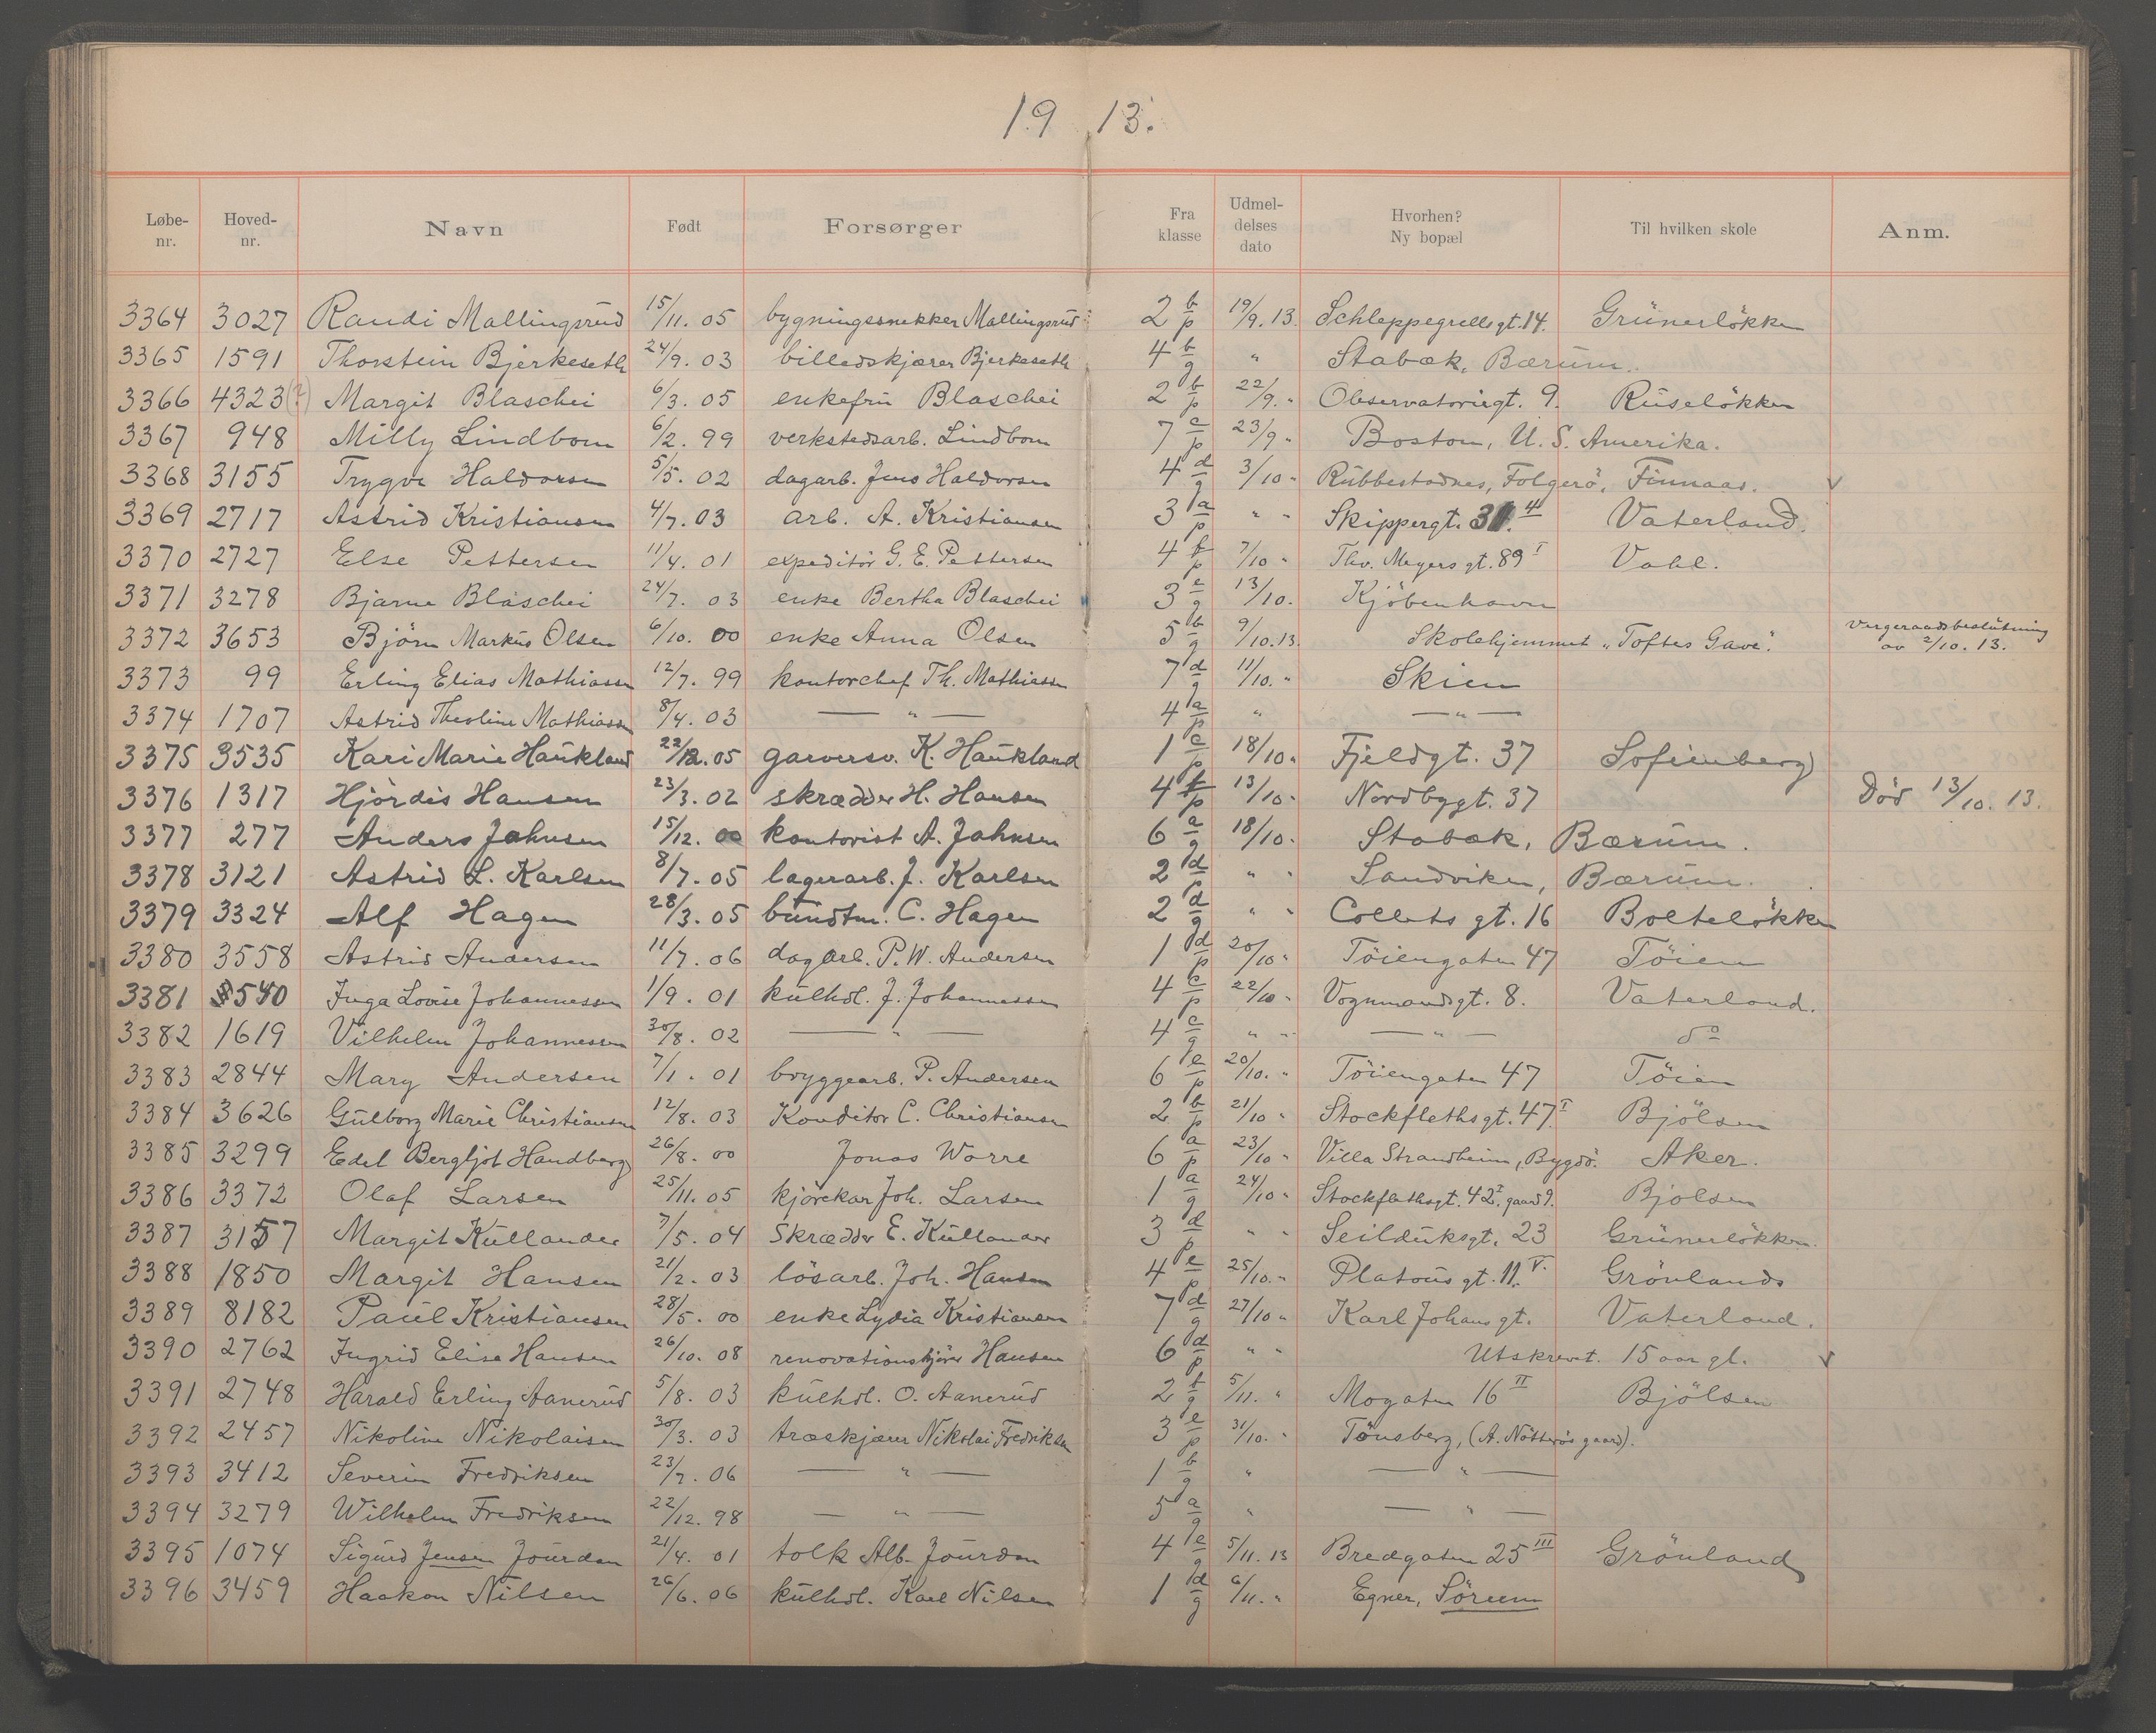 19 13.
Løbe-nr. Hoved-nr. Navn Født Forsørger Fra klasse Udmel-delses dato Hvorhen? Ny bopæl Til hvilken skole Anm.
3364 3027 Randi Mallingsrud 15/11. 05 bygningssnekker Mallingsrud 2 b/p 19/9. 13. Schleppegrells gt. 14. Grünerløkken
3365 1591 Thorstein Bjerkeseth 24/9. 03 billedskjærer Bjerkeseth 4 b/g " Stabæk, Bærum.
3366 4323 (?) Margit Blaschei 6/3. 05 enkefru Blaschei 2 b/p 22/9. " Observatoriegt. 9. Ruseløkken
3367 948 Milly Lindbom 6/2. 99 verkstedsarb. Lindbom 7 c/p 23/9 " Boston, U. S. Amerika.
3368 3155 Trygve Haldorsen 5/5. 02 dagarb. Jens Haldorsen 4 d/g 3/10 " Rubbestadnes, Folgerö, Finnaas. ✓
3369 2717 Astrid Kristiansen 4/7. 03 arb. A. Kristiansen 3 a/p " " Skippergt. 31. II Vaterland.
3370 2727 Else Pettersen 11/4. 01 expeditör G. E. Pettersen 4 f/p 7/10 " Thv. Meyers gt. 89 I Vahl.
3371 3278 Bjarne Blaschei 24/7. 03 enke Bertha Blaschei 3 e/g 13/10. Kjöbenhavn
3372 3653 Björn Markus Olsen 6/10. 00 enke Anna Olsen 5 b/g 9/10. 13. Skolehjemmet "Toftes Gave". Vergeraadsbeslutning av 2/10. 13.
3373 99 Erling Elias Mathiassen 12/7. 99 kontorchef Th. Mathiassen 7 d/g 11/10. " Skien
3374 1707 Astrid Theoline Mathiassen 8/4. 03 — " — 4 a/p " — " —
3375 3535 Kari Marie Haukland 22/12. 05 garversv. K. Haukland 1 c/p 18/10. Fjeldgt. 37 Sofienberg
3376 1317 Hjördis Hansen 23/3. 02 skrædder H. Hansen 4 f/p 13/10. Nordbygt. 37 Död 13/10. 13.
3377 277 Anders Jahnsen 15/12. 00 kontorist A. Jahnsen 6 a/g 18/10. Stabæk, Bærum.
3378 3121 Astrid L. Karlsen 8/7. 05 lagerarb. J. Karlsen 2 d/p " " Sandviken, Bærum.
3379 3324 Alf Hagen 28/3. 05 bundtm. C. Hagen 2 d/g " " Collets gt. 16 Bolteløkken
3380 3558 Astrid Andersen 11/7. 06 dagarb. P. W. Andersen 1 d/p 20/10 " Töiengaten 47 Töien
3381 540 Inga Lovise Johannessen 1/9. 01 kulhdl. J. Johannessen 4 c/p 22/10 " Vognmandsgt. 8. Vaterland.
3382 1619 Vilhelm Johannessen 30/8. 02 — " — 4 c/g " " — " — do
3383 2844 Mary Andersen 7/1. 01 bryggearb. P. Andersen 6 e/p 20/10. " Töiengaten 47 Töien
3384 3626 Gulborg Marie Christiansen 12/8. 03 Konditor C. Christiansen 2 b/p 21/10 " Stockflethsgt. 47. I Bjölsen
3385 3299 Edel Bergljot Handberg 26/8. 00 Jonas Worre 6 a/p 23/10 " Villa Strandheim, Bygdö. Aker.
3386 3372 Olaf Larsen 25/11. 05 kjörekar Joh. Larsen 1 a/g 24/10 " Stockflethsgt. 42 I, gaard 9. Bjölsen
3387 3157 Margit Kullander 7/5. 04 Skrædder E. Kullander 3 d/p " " Seilduksgt. 23 Grünerløkken.
3388 1850 Margit Hansen 21/2. 03 lösarb. Joh. Hansen 4 e/p 25/10. " Platous gt. 11. V. Grönlands
3389 8182 Paul Kristiansen 28/5. 00 enke Lydia Kristiansen 7 d/g 27/10 " Karl Johans gt. Vaterland.
3390 2762 Ingrid Elise Hansen 26/10. 08 renovationskjörer Hansen 6 d/p " " Utskrevet. 15 aar gl. ✓
3391 2748 Harald Erling Aanerud 5/8. 03 kulhdl. O. Aanerud 2 f/g 5/11. " Mogaten 16 II Bjölsen
3392 2457 Nikoline Nikolaisen 30/3. 03 træskjærer Nikolai Fredriksen 3 e/p 31/10. " Tönsberg, (A. Nötterös gaard).
3393 3412 Severin Fredriksen 23/7. 06 — " — 1 b/g " — " —
3394 3279 Wilhelm Fredriksen 22/12. 98 — " — 5 a/g " — " —
3395 1074 Sigurd Jensen Jourdan 21/4. 01 tolk Alb. Jourdan 4 e/g 5/11. 13 Bredgaten 25 III Grönland
3396 3459 Haakon Nilsen 26/6. 06 kulhdl. Karl Nilsen 1 d/g 6/11. " Egner, Sörum